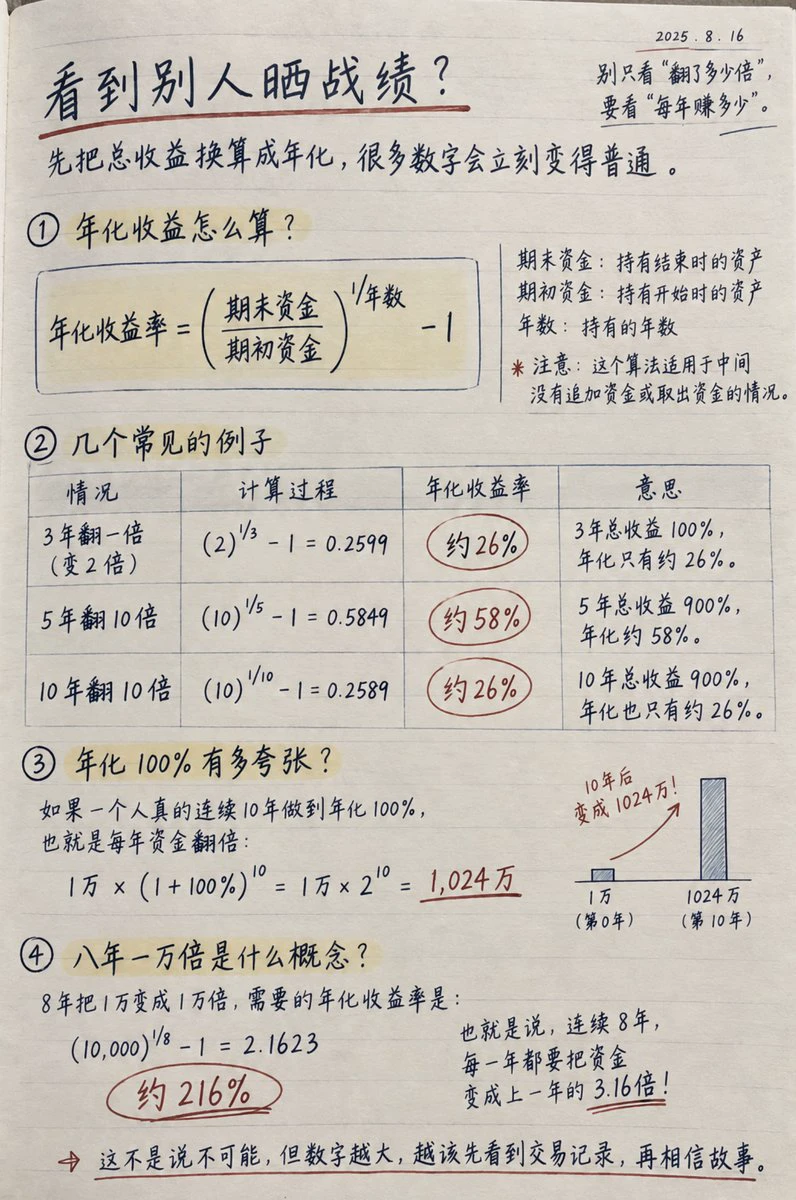 2025.8.16
看到别人晒战绩？
别只看“翻了多少倍”，
要看“每年赚多少”。
先把总收益换算成年化，很多数字会立刻变得普通。
① 年化收益怎么算？
年化收益率 = (期末资金/期初资金)^1/年数 - 1
期末资金：持有结束时的资产
期初资金：持有开始时的资产
年数：持有的年数
* 注意：这个算法适用于中间
没有追加资金或取出资金的情况。
② 几个常见的例子
情况 计算过程 年化收益率 意思
3年翻一倍
（变2倍）
(2)^1/3 - 1 = 0.2599
约26%
3年总收益100%，
年化只有约26%。
5年翻10倍
(10)^1/5 - 1 = 0.5849
约58%
5年总收益900%，
年化约58%。
10年翻10倍
(10)^1/10 - 1 = 0.2589
约26%
10年总收益900%，
年化也只有约26%。
③ 年化100%有多夸张？
如果一个人真的连续10年做到年化100%，
也就是每年资金翻倍：
1万 × (1+100%)^10 = 1万 × 2^10 = 1,024万
10年后
变成1024万！
1万
（第0年）
1024万
（第10年）
④ 八年一万倍是什么概念？
8年把1万变成1万倍，需要的年化收益率是：
(10,000)^1/8 - 1 = 2.1623
约216%
也就是说，连续8年，
每一年都要把资金
变成上一年的3.16倍！
→ 这不是说不可能，但数字越大，越该先看到交易记录，再相信故事。